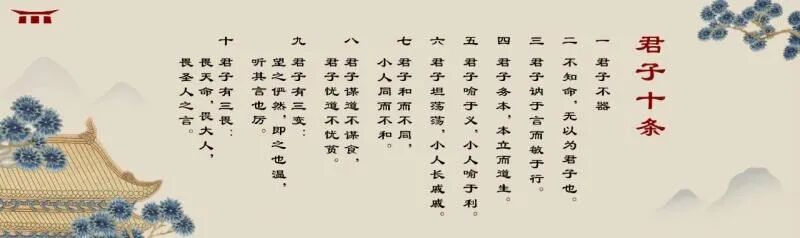 君子十条
一 君子不器
二 不知命，无以为君子也。
三 君子讷于言而敏于行。
四 君子务本，本立而道生。
五 君子喻于义，小人喻于利。
六 君子坦荡荡，小人长戚戚。
七 君子和而不同，
小人同而不和。
八 君子谋道不谋食，
君子忧道不忧贫。
九 君子有三变：
望之俨然，即之也温，
听其言也厉。
十 君子有三畏：
畏天命，畏大人，
畏圣人之言。